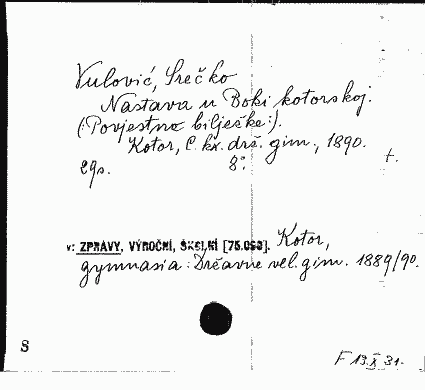 Vulović, Srečko
Nastava u Boki kotorskoj.
(:Povjestne bilješke:).
Kotor, C. kr. drž. gim., 1890.
8°. t.
v: ZPRÁVY, VÝROČNÍ, ŠKOLNÍ [75.053]. Kotor,
gymnasia: Državne vel. gim. 1889/90.
S
F 13.X 31.